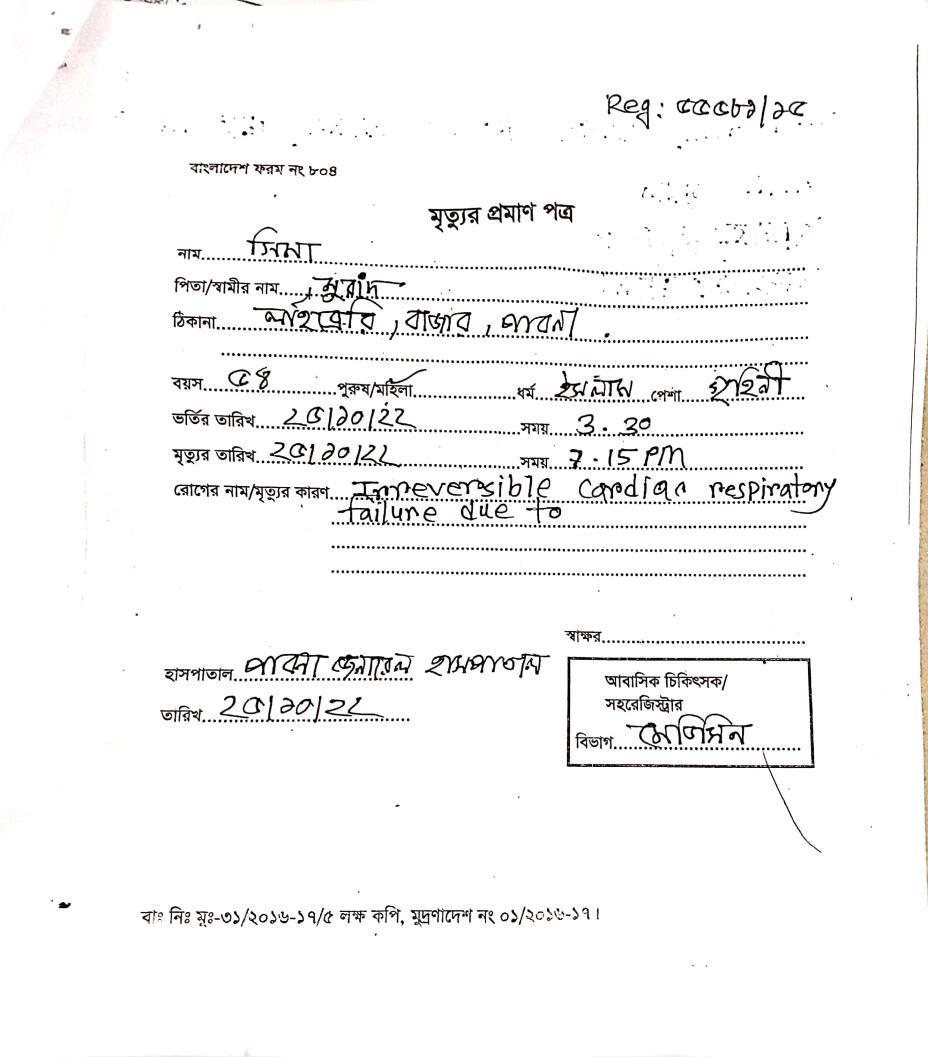 Reg: ৫৫৫৮১/১৫
বাংলাদেশ ফরম নং ৮০৪
মৃত্যুর প্রমাণ পত্র
নাম সিমা
পিতা/স্বামীর নাম মুরাদ
ঠিকানা লাইব্রেরি, বাজার, পাবনা.
বয়স ৫৪ পুরুষ/মহিলা ধর্ম ইসলাম পেশা গৃহিনী
ভর্তির তারিখ ২৫/১০/২২ সময় 3.30
মৃত্যুর তারিখ ২৫/১০/২২ সময় 7.15 PM
রোগের নাম/মৃত্যুর কারণ Irreversible cardiac respiratory
failure due to
স্বাক্ষর
হাসপাতাল পাবনা জেনারেল হাসপাতাল
আবাসিক চিকিৎসক/
সহরেজিস্ট্রার
তারিখ ২৫/১০/২২
বিভাগ মেডিসিন
বাঃ নিঃ মুঃ-৩১/২০১৬-১৭/৫ লক্ষ কপি, মুদ্রণাদেশ নং ০১/২০১৬-১৭।